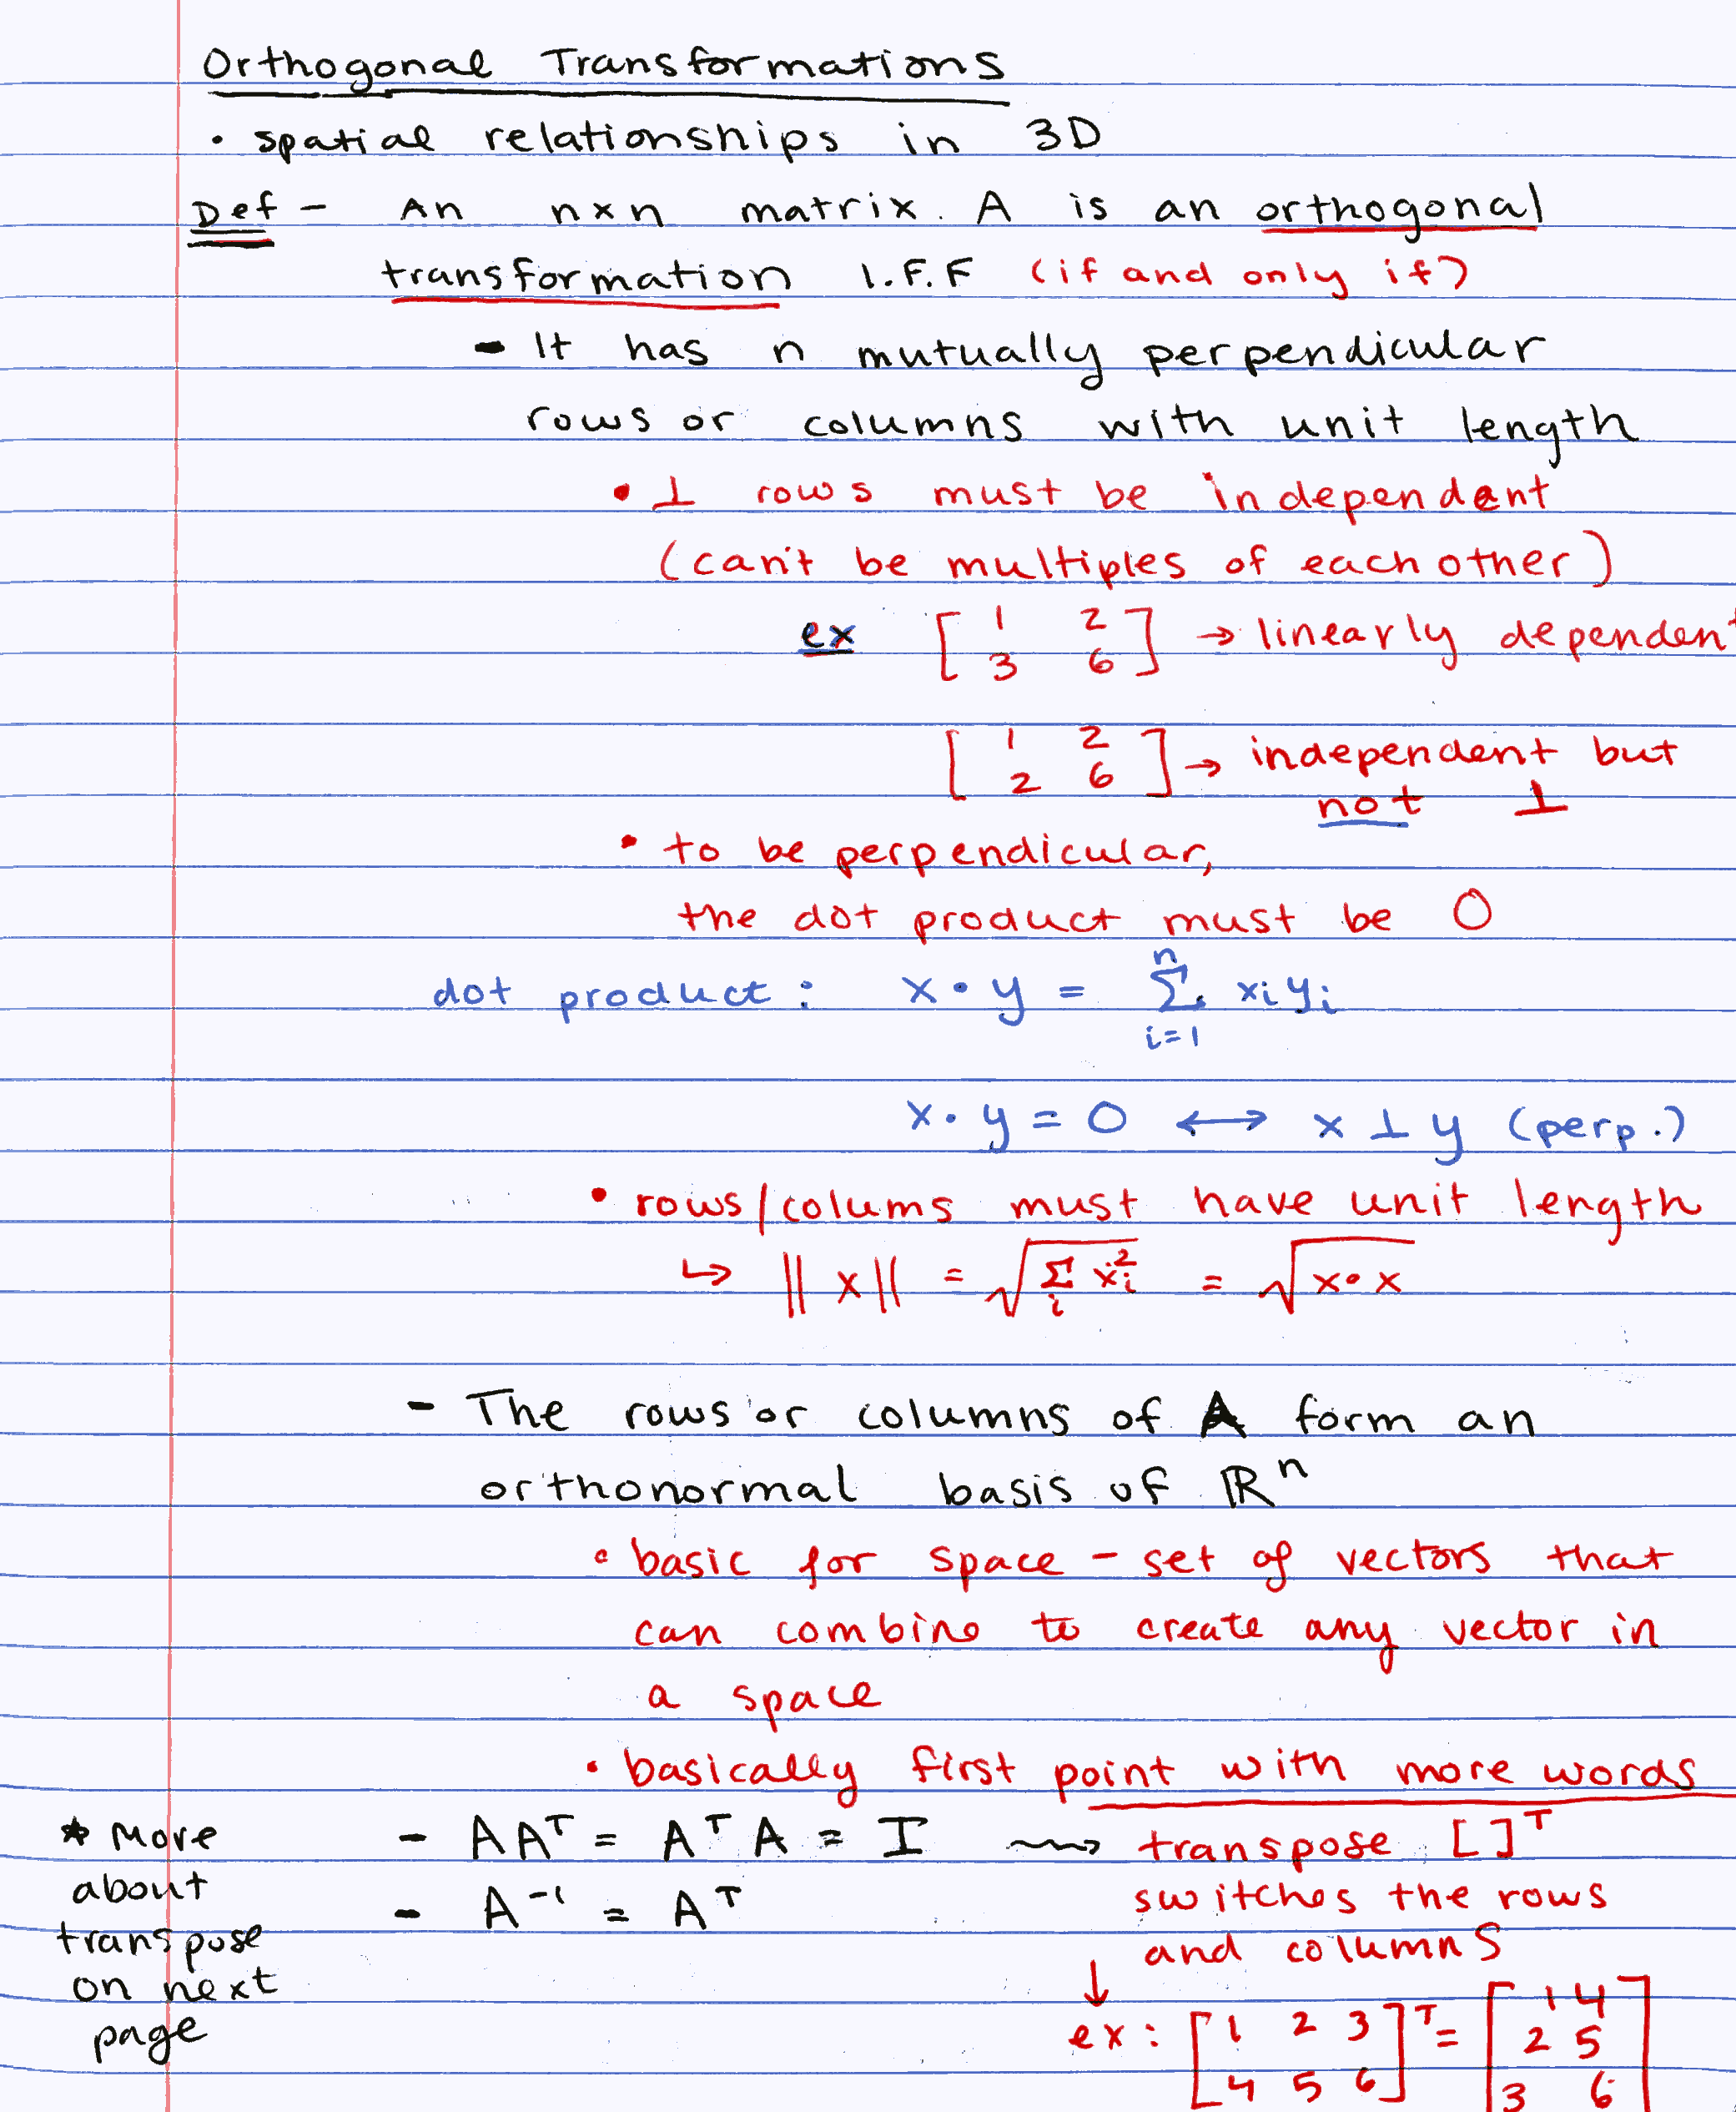 Orthogonal Transformations
• spatial relationships in 3D
Def - An n×n matrix A is an orthogonal
transformation I.F.F (if and only if)
- It has n mutually perpendicular
rows or columns with unit length
• ⊥ rows must be independent
(can't be multiples of each other)
ex [1 2; 3 6] → linearly dependent
[1 2; 2 6] → independent but
not ⊥
• to be perpendicular,
the dot product must be 0
dot product: x • y = Σ_{i=1}^{n} xᵢyᵢ
x • y = 0 ↔ x ⊥ y (perp.)
• rows/colums must have unit length
↳ ||x|| = √(Σᵢ xᵢ²) = √(x • x)
- The rows or columns of A form an
orthonormal basis of ℝⁿ
• basic for space - set of vectors that
can combine to create any vector in
a space
• basically first point with more words
- AAᵀ = AᵀA = I ⇝ transpose [ ]ᵀ
switches the rows
- A⁻¹ = Aᵀ
and columns
↓
ex: [1 2 3; 4 5 6]ᵀ = [1 4; 2 5; 3 6]
* More
about
transpose
on next
page